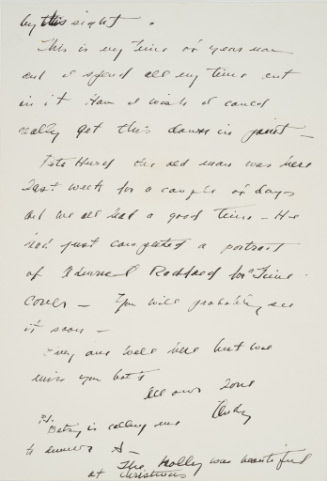 by this sight.
This is my time of year now
and I spend all my time out
in it How I wish I could
really get this down in paint —
Pete Hurd the old man was here
last week for a couple of days
and we all had a good time — He
had just completed a portrait
of Admiral Radford for "Time"
cover — You will probably see
it soon —
Every one well here but we
miss you both
All our love
Andy
P.S.
Betsy is calling me
to dinner so —
The Holly was beautiful
at Christmas